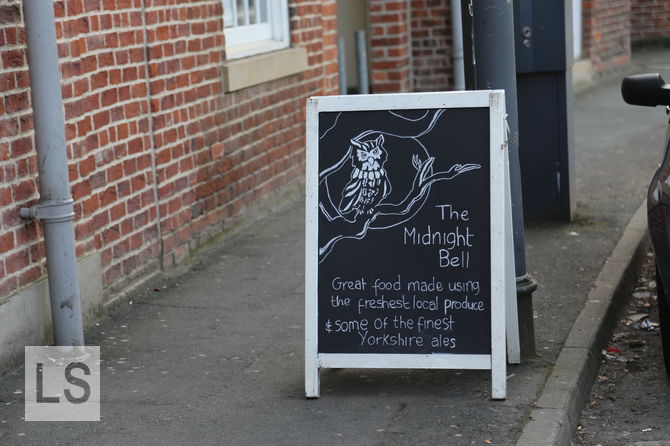 The
Midnight
Bell
Great food made using
the freshest local produce
& some of the finest
Yorkshire ales
LS